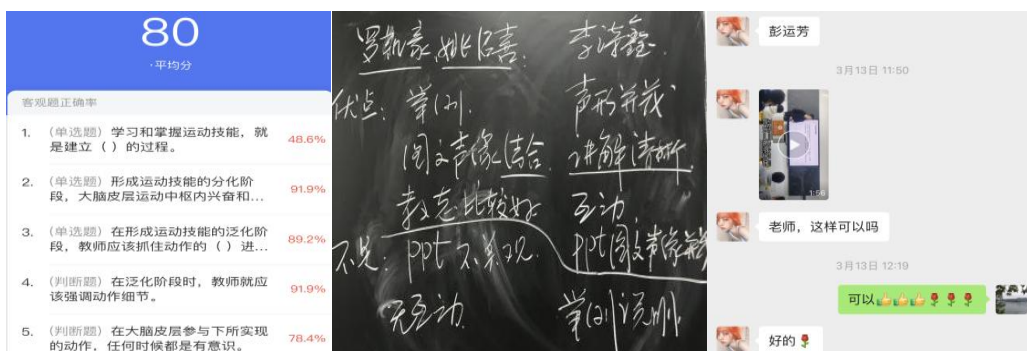 80
·平均分
客观题正确率
1. (单选题) 学习和掌握运动技能，就
是建立（ ）的过程。
48.6%
2. (单选题) 形成运动技能的分化阶
段，大脑皮层运动中枢内兴奋和...
91.9%
3. (单选题) 在形成运动技能的泛化阶
段，教师应该抓住动作的（ ）进...
89.2%
4. (判断题) 在泛化阶段时，教师就应
该强调动作细节。
91.9%
5. (判断题) 在大脑皮层参与下所实现
的动作，任何时候都是有意识。
78.4%
优点: 举例
图文声像结合
教态比较好
不足: ppt 不美观
无互动
声形并茂
讲解清晰
互动
ppt图文声像并茂
举例说明
彭运芳
3月13日 11:50
1:56
老师，这样可以吗
3月13日 12:19
可以👍👍👍🌹🌹🌹
好的🌹